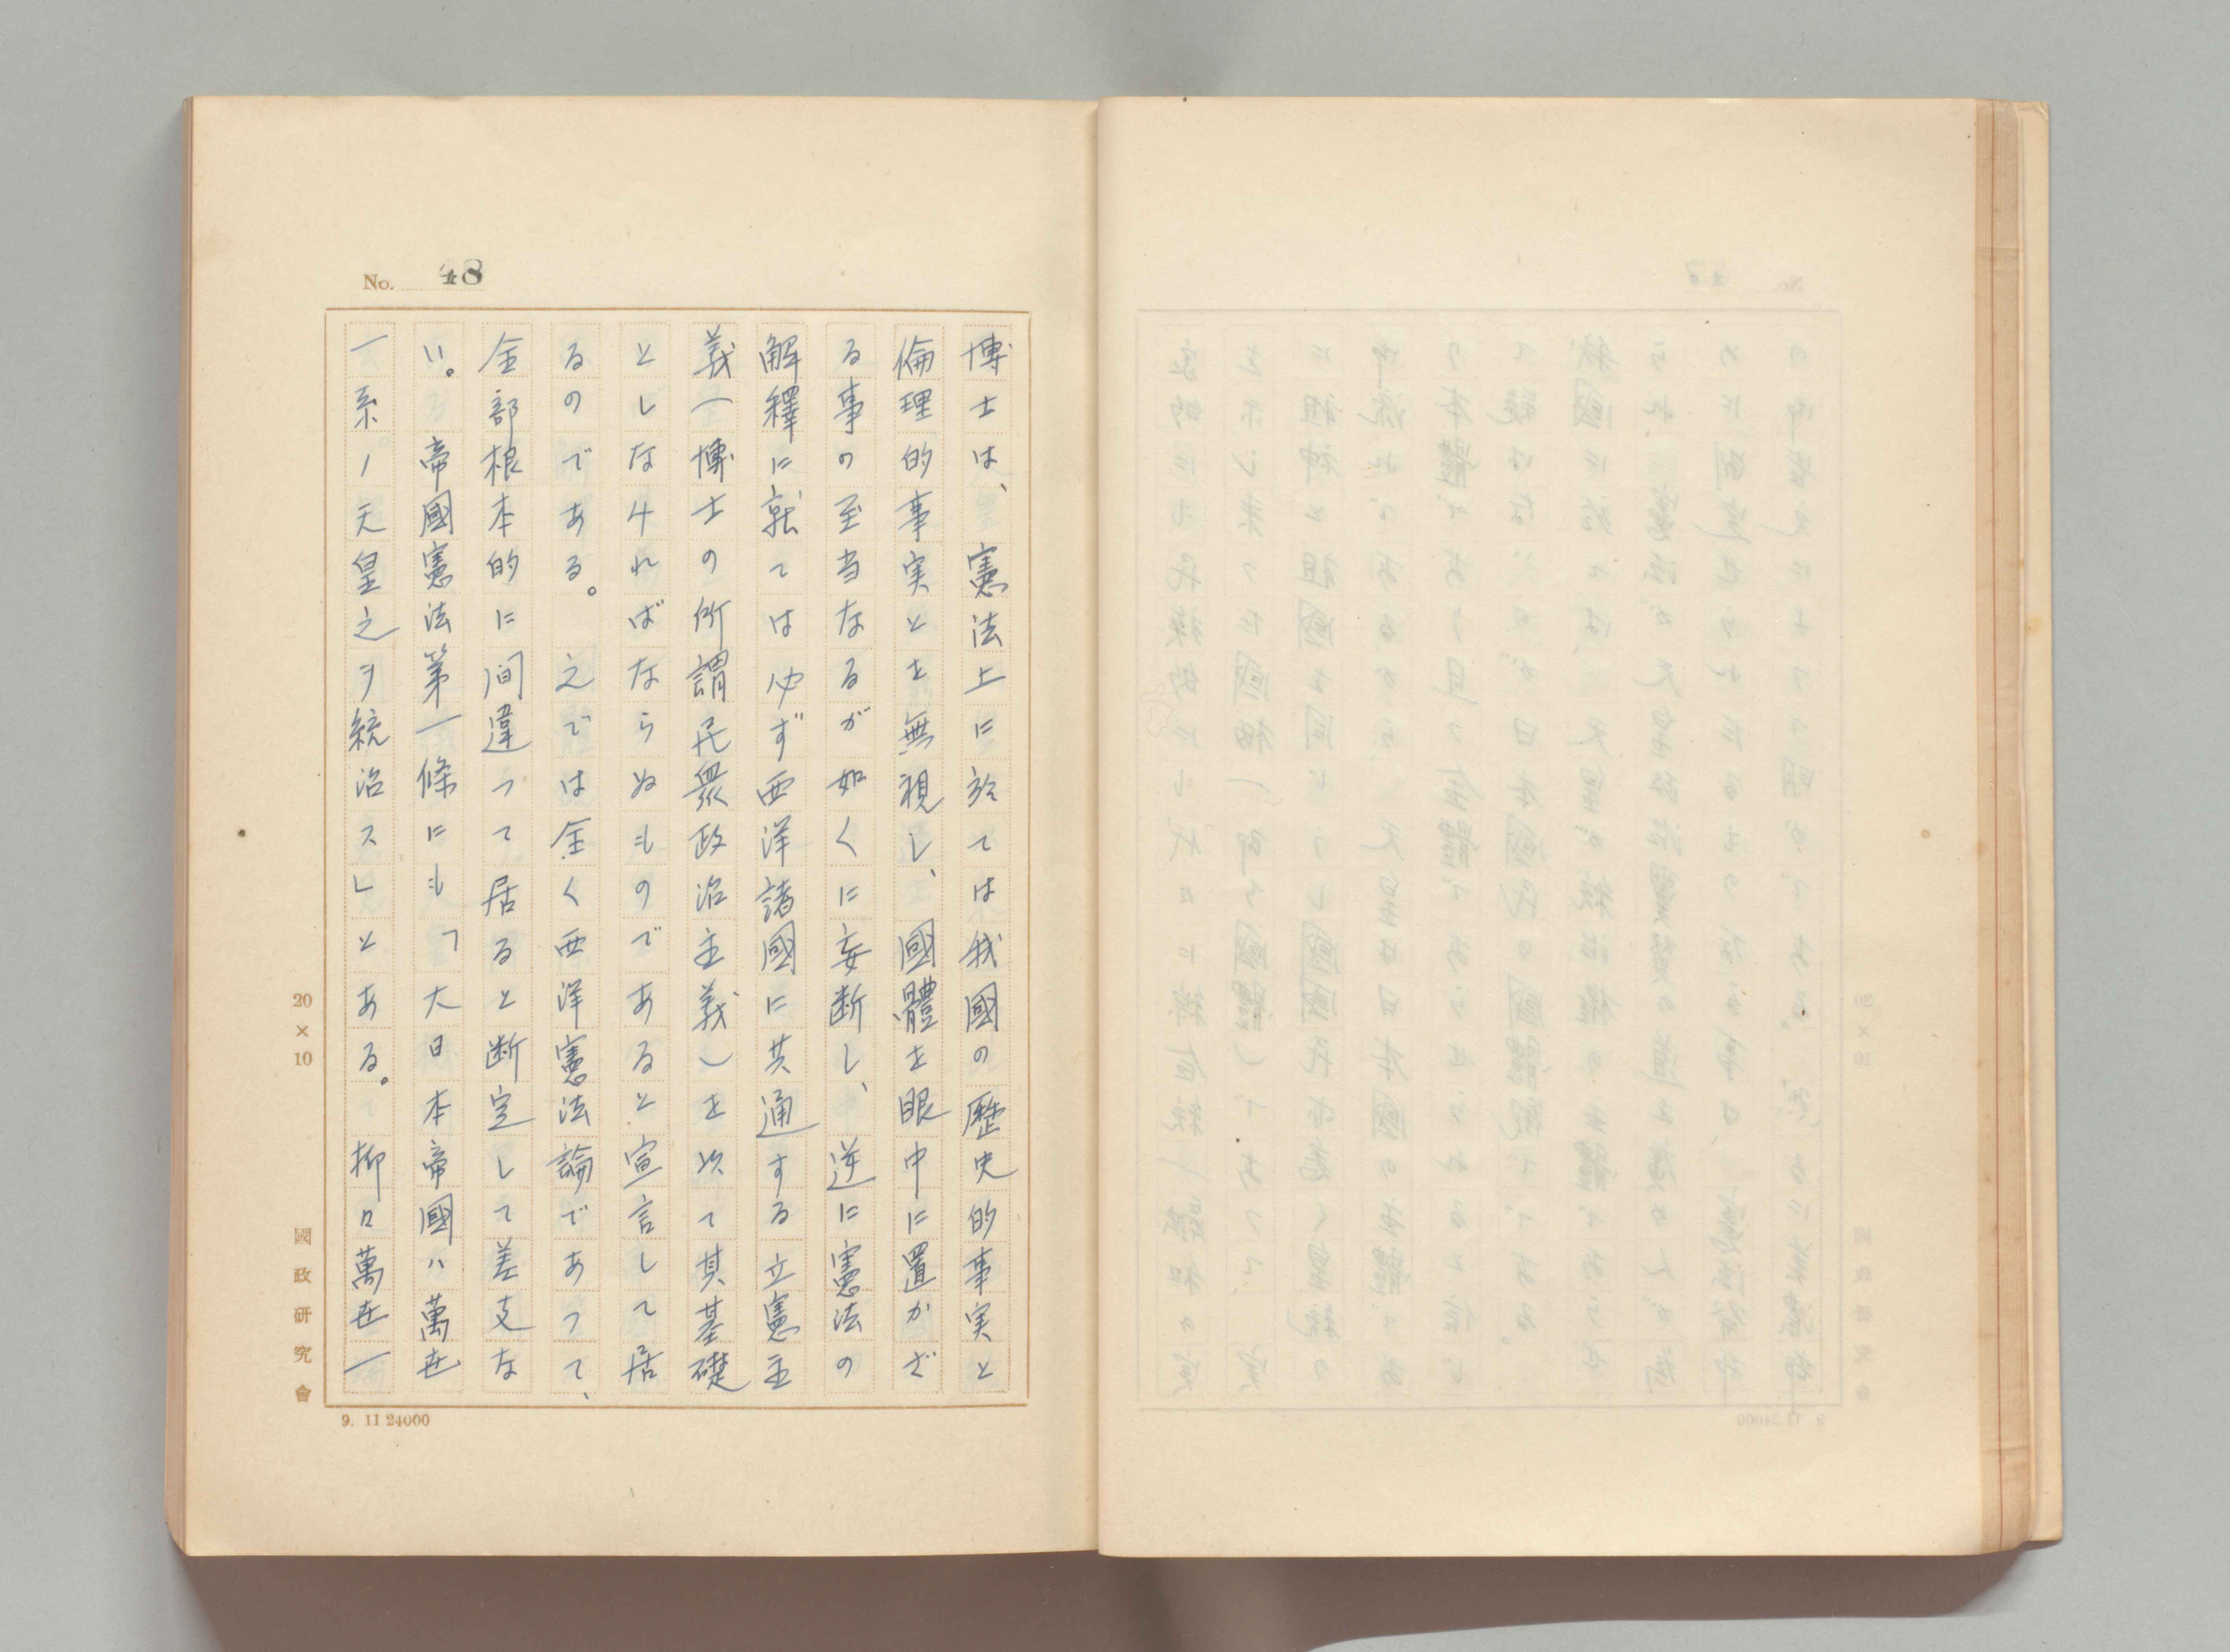 No. 48
博士は、憲法上に於ては我國の歴史的事実と
倫理的事実とを無視し、國體を眼中に置かざ
る事の至当なるが如くに妄断し、逆に憲法の
解釋に就ては必ず西洋諸國に共通する立憲主
義（博士の所謂民衆政治主義）を以て其基礎
としなければならぬものであると宣言して居
るのである。之では全く西洋憲法論であつて、
全部根本的に間違つて居ると断定して差支な
い。帝國憲法第一條にも「大日本帝國ハ萬世
一系ノ天皇之ヲ統治ス」とある。抑々萬世一
20×10
國政研究會
9. 11 24000